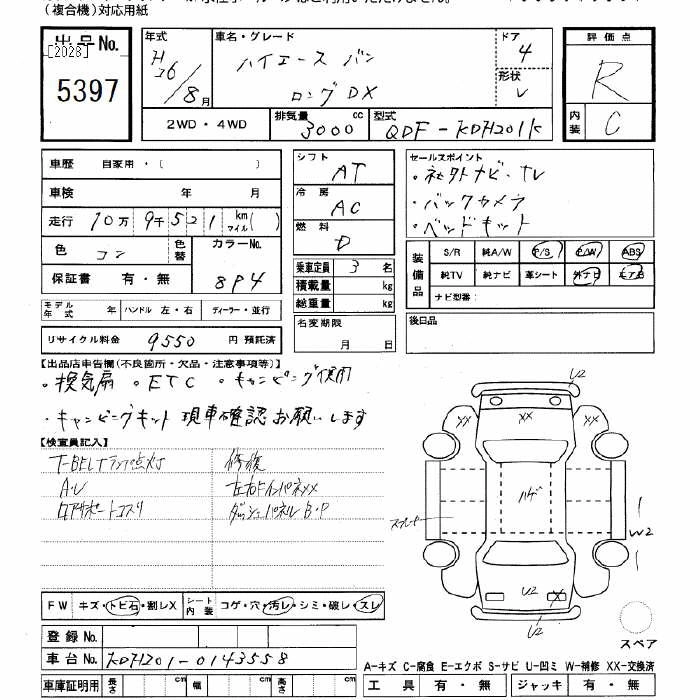 (複合機)対応用紙
出品No.
[2028]
5397
年式
H26/8月
車名・グレード
ハイエース バン
ロング DX
ドア
4
形状
V
評価点
R
内装
C
2WD・4WD
排気量
3000cc
型式
QDF-KDH201K
車歴 自家用・( )
車検 年 月
走行 10万 9千 521 km マイル( )
色
コン
色替
カラーNo.
8P4
保証書 有・無
モデル年式 年 ハンドル 左・右 ディーラー・並行
リサイクル料金 9550 円 預託済
シフト
AT
冷房
AC
燃料
D
乗車定員 3 名
積載量 kg
総重量 kg
名変期限
月 日
セールスポイント
・社外ナビ・TV
・バックカメラ
・ベッドキット
装備品
S/R 純A/W P/S P/W ABS
純TV 純ナビ 革シート 外ナビ エアB
ナビ型番:
後日品
【出品店申告欄(不良箇所・欠品・注意事項等)】
・換気扇 ・ETC ・キャンピング使用
・キャンピングキット 現車確認お願いします
【検査員記入】
T-BELTランプ点灯 修復
A・U 左右インパネXX
ダッシュパネルB・P
U2
XX XX XX
ハゲ
W2
U2 X
U2
スペア
FW キズ・トビ石・割レX シート内装 コゲ・穴・汚レ・シミ・破レ・スレ
登録No.
車台No. KDH201-0143558
車庫証明用 長さ cm 幅 cm 高さ cm
A-キズ C-腐食 E-エクボ S-サビ U-凹ミ W-補修 XX-交換済
工具 有・無 ジャッキ 有・無